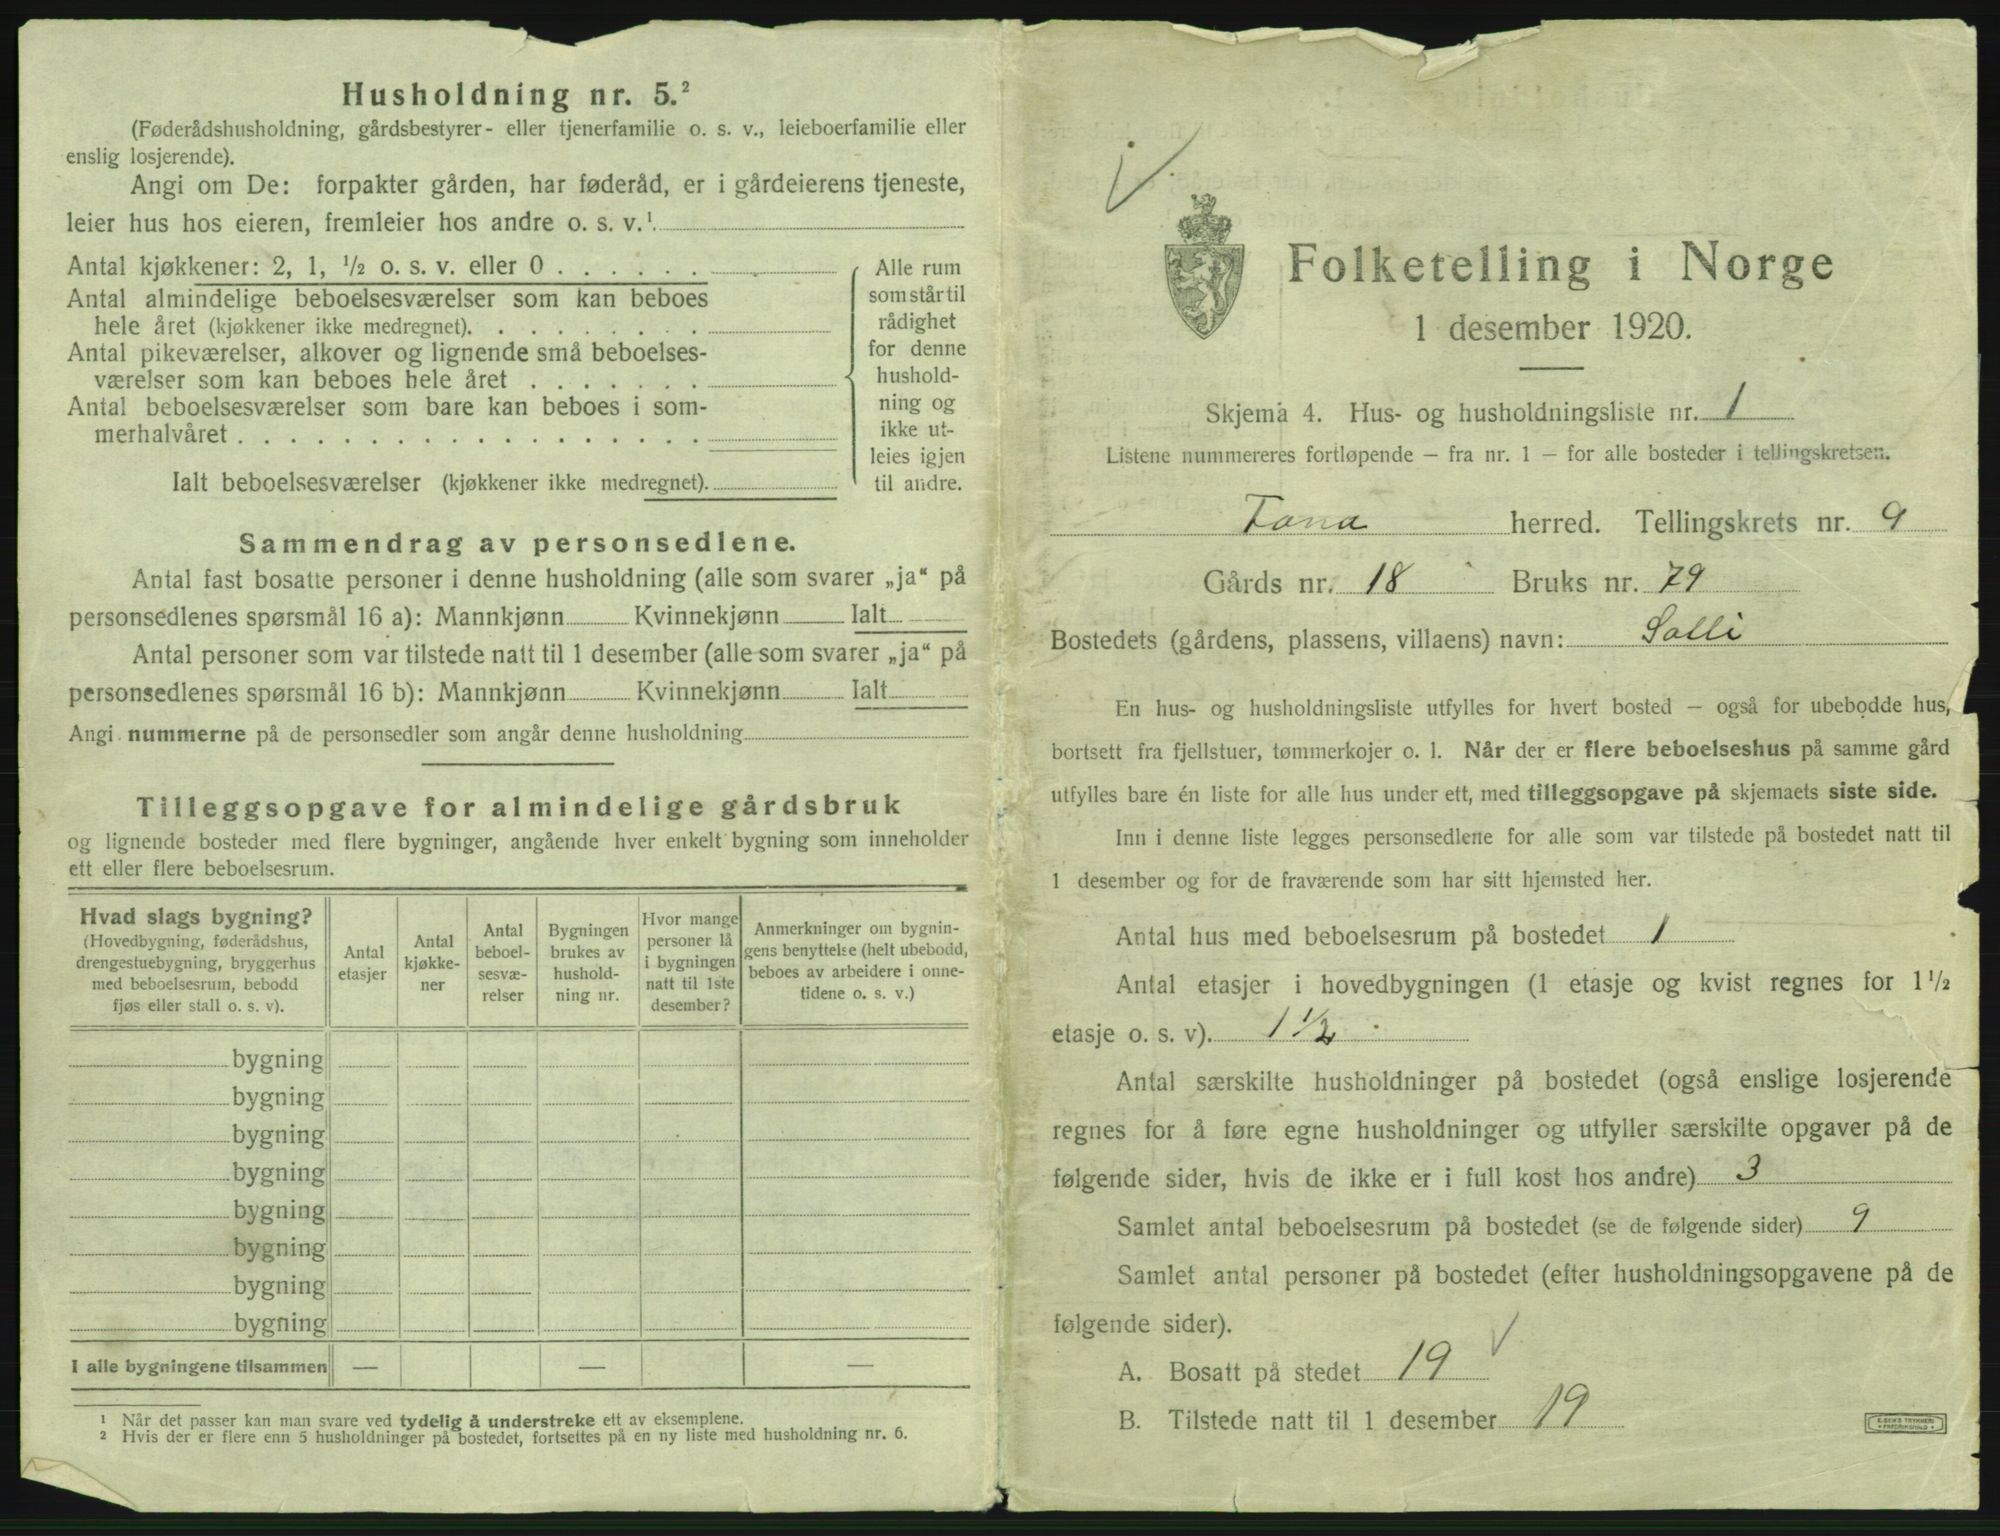 Husholdning nr. 5.²
(Føderådshusholdning, gårdsbestyrer- eller tjenerfamilie o. s. v., leieboerfamilie eller
enslig losjerende).
Angi om De: forpakter gården, har føderåd, er i gårdeierens tjeneste,
leier hus hos eieren, fremleier hos andre o. s. v.¹
Antal kjøkkener: 2, 1, ½ o. s. v. eller 0 . . . . . .
Antal almindelige beboelsesværelser som kan beboes
hele året (kjøkkener ikke medregnet). . . . . . . . .
Antal pikeværelser, alkover og lignende små beboelses-
værelser som kan beboes hele året . . . . . . .
Antal beboelsesværelser som bare kan beboes i som-
merhalvåret . . . . . . . . . . . . . . . . . .
Ialt beboelsesværelser (kjøkkener ikke medregnet).
Alle rum
som står til
rådighet
for denne
hushold-
ning og
ikke ut-
leies igjen
til andre.
Sammendrag av personsedlene.
Antal fast bosatte personer i denne husholdning (alle som svarer „ja“ på
personsedlenes spørsmål 16 a): Mannkjønn Kvinnekjønn Ialt
Antal personer som var tilstede natt til 1 desember (alle som svarer „ja“ på
personsedlenes spørsmål 16 b): Mannkjønn Kvinnekjønn Ialt
Angi nummerne på de personsedler som angår denne husholdning
Tilleggsopgave for almindelige gårdsbruk
og lignende bosteder med flere bygninger, angående hver enkelt bygning som inneholder
ett eller flere beboelsesrum.
Hvad slags bygning?
(Hovedbygning, føderådshus,
drengestuebygning, bryggerhus
med beboelsesrum, bebodd
fjøs eller stall o. s. v).
Antal
etasjer
Antal
kjøkke-
ner
Antal
beboel-
sesvæ-
relser
Bygningen
brukes av
hushold-
ning nr.
Hvor mange
personer lå
i bygningen
natt til 1ste
desember?
Anmerkninger om bygnin-
gens benyttelse (helt ubebodd,
beboes av arbeidere i onne-
tidene o. s. v.)
bygning
bygning
bygning
bygning
bygning
bygning
bygning
bygning
I alle bygningene tilsammen — — —
¹ Når det passer kan man svare ved tydelig å understreke ett av eksemplene.
² Hvis der er flere enn 5 husholdninger på bostedet, fortsettes på en ny liste med husholdning nr. 6.
Folketelling i Norge
1 desember 1920.
Skjema 4. Hus- og husholdningsliste nr. 1
Listene nummereres fortløpende – fra nr. 1 – for alle bosteder i tellingskretsen.
Fana herred. Tellingskrets nr. 9
Gårds nr. 18 Bruks nr. 79
Bostedets (gårdens, plassens, villaens) navn: Solli
En hus- og husholdningsliste utfylles for hvert bosted – også for ubebodde hus,
bortsett fra fjellstuer, tømmerkojer o. l. Når der er flere beboelseshus på samme gård
utfylles bare én liste for alle hus under ett, med tilleggsopgave på skjemaets siste side.
Inn i denne liste legges personsedlene for alle som var tilstede på bostedet natt til
1 desember og for de fraværende som har sitt hjemsted her.
Antal hus med beboelsesrum på bostedet 1
Antal etasjer i hovedbygningen (1 etasje og kvist regnes for 1½
etasje o. s. v). 1½
Antal særskilte husholdninger på bostedet (også enslige losjerende
regnes for å føre egne husholdninger og utfyller særskilte opgaver på de
følgende sider, hvis de ikke er i full kost hos andre) 3
Samlet antal beboelsesrum på bostedet (se de følgende sider) 9
Samlet antal personer på bostedet (efter husholdningsopgavene på de
følgende sider).
A. Bosatt på stedet 19
B. Tilstede natt til 1 desember 19